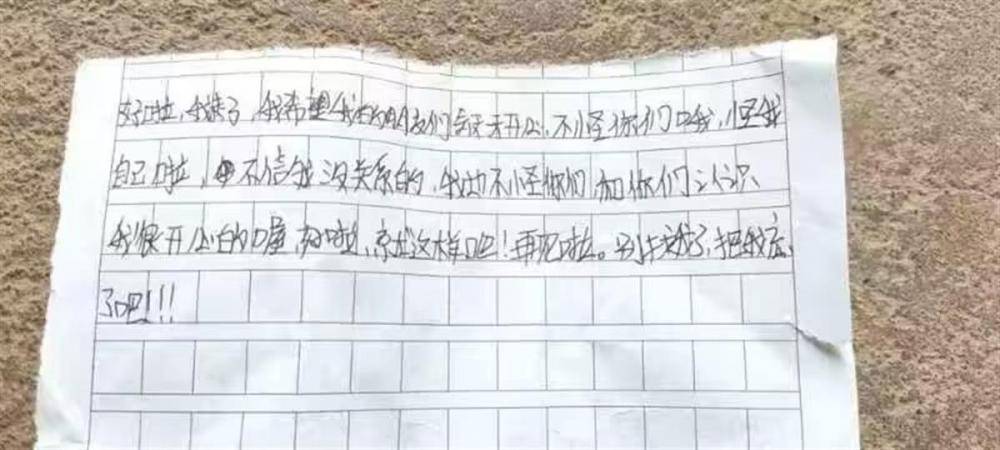 好啦,我走了,我希望我的朋友们天天开心,不怪你们,怪我
自己啦,不信我没关系的,我也不怪你们,和你们认识
我很开心的喔,好啦,就这样吧!再见啦。别找我了,把我忘
了吧!!!